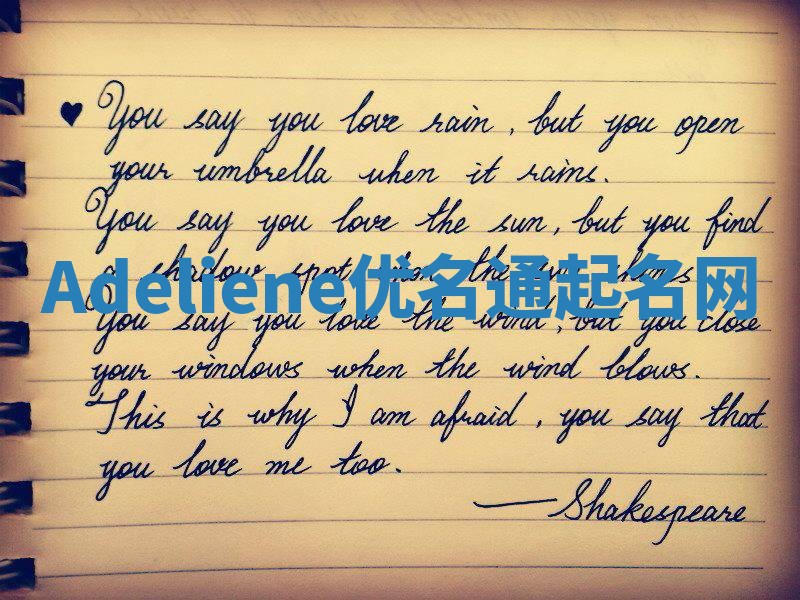 ♥ You say you love rain, but you open
your umbrella when it rains.
You say you love the sun, but you find
a shadow spot when the sun shines
Adeliene优名通起名网
You say you love the wind, but you close
your windows when the wind blows.
This is why I am afraid, you say that
you love me too.
—Shakespeare